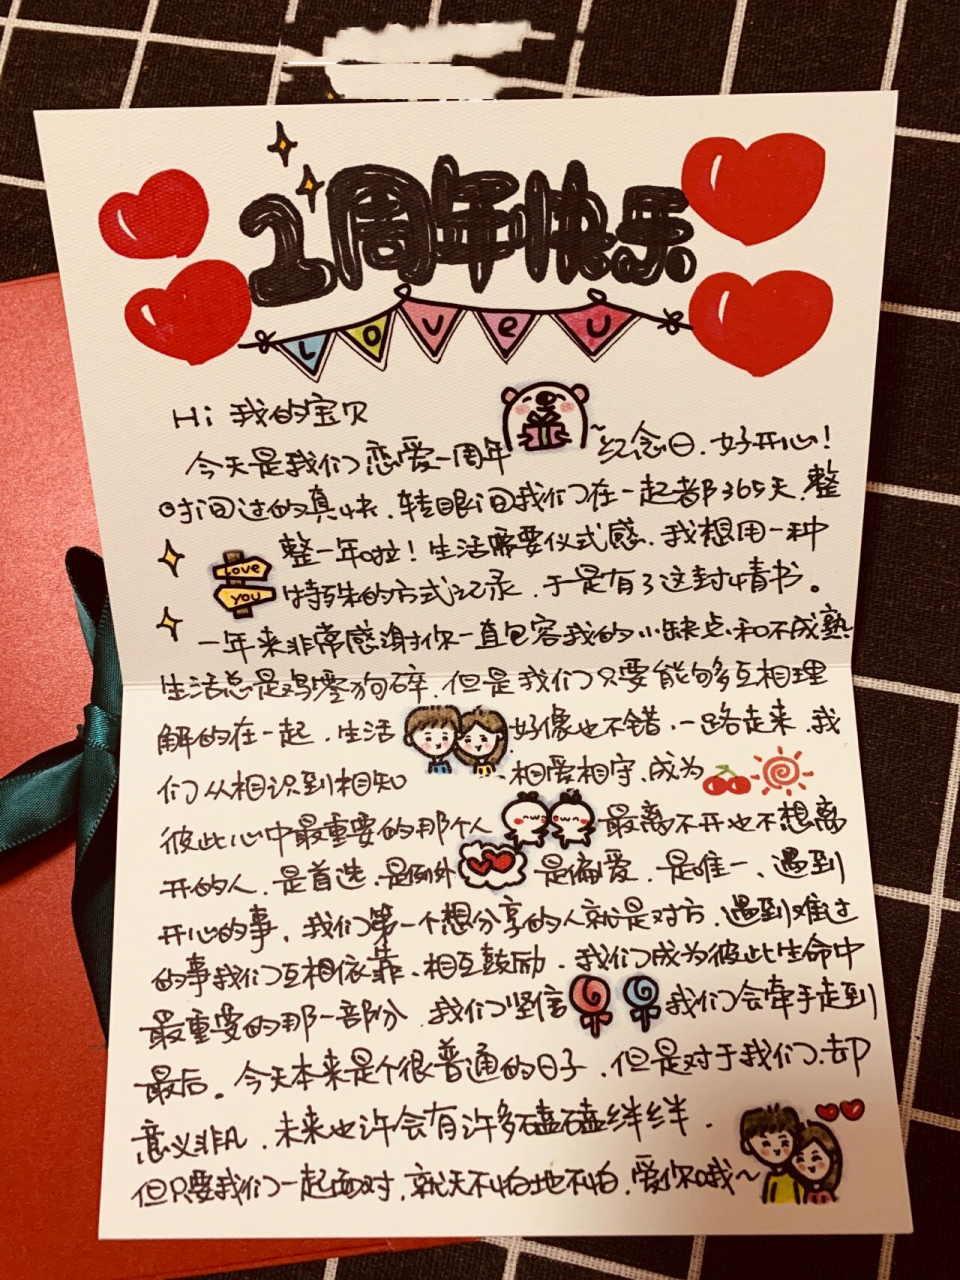 1周年快乐
LOVE U
Hi 我的宝贝
今天是我们恋爱一周年~纪念日,好开心!
时间过的真快,转眼间我们在一起都365天,整
整一年啦!生活需要仪式感,我想用一种
Love
YOU
特殊的方式记录,于是有了这封情书。
一年来非常感谢你一直包容我的小缺点和不成熟
生活总是鸡零狗碎,但是我们只要能够多互相理
解的在一起,生活好像也不错,一路走来,我
们从相识到相知、相爱相守,成为
彼此心中最重要的那个人最离不开也不想离
开的人,是首选,是例外是偏爱,是唯一、遇到
开心的事,我们第一个想分享的人就是对方,遇到难过
的事我们互相依靠、相互鼓励,我们成为彼此生命中
最重要的那一部份,我们坚信我们会牵手走到
最后。今天本来是个很普通的日子,但是对于我们,却
意义非凡,未来也许会有许多磕磕绊绊,
但只要我们一起面对,就天不怕地不怕,爱你哦~